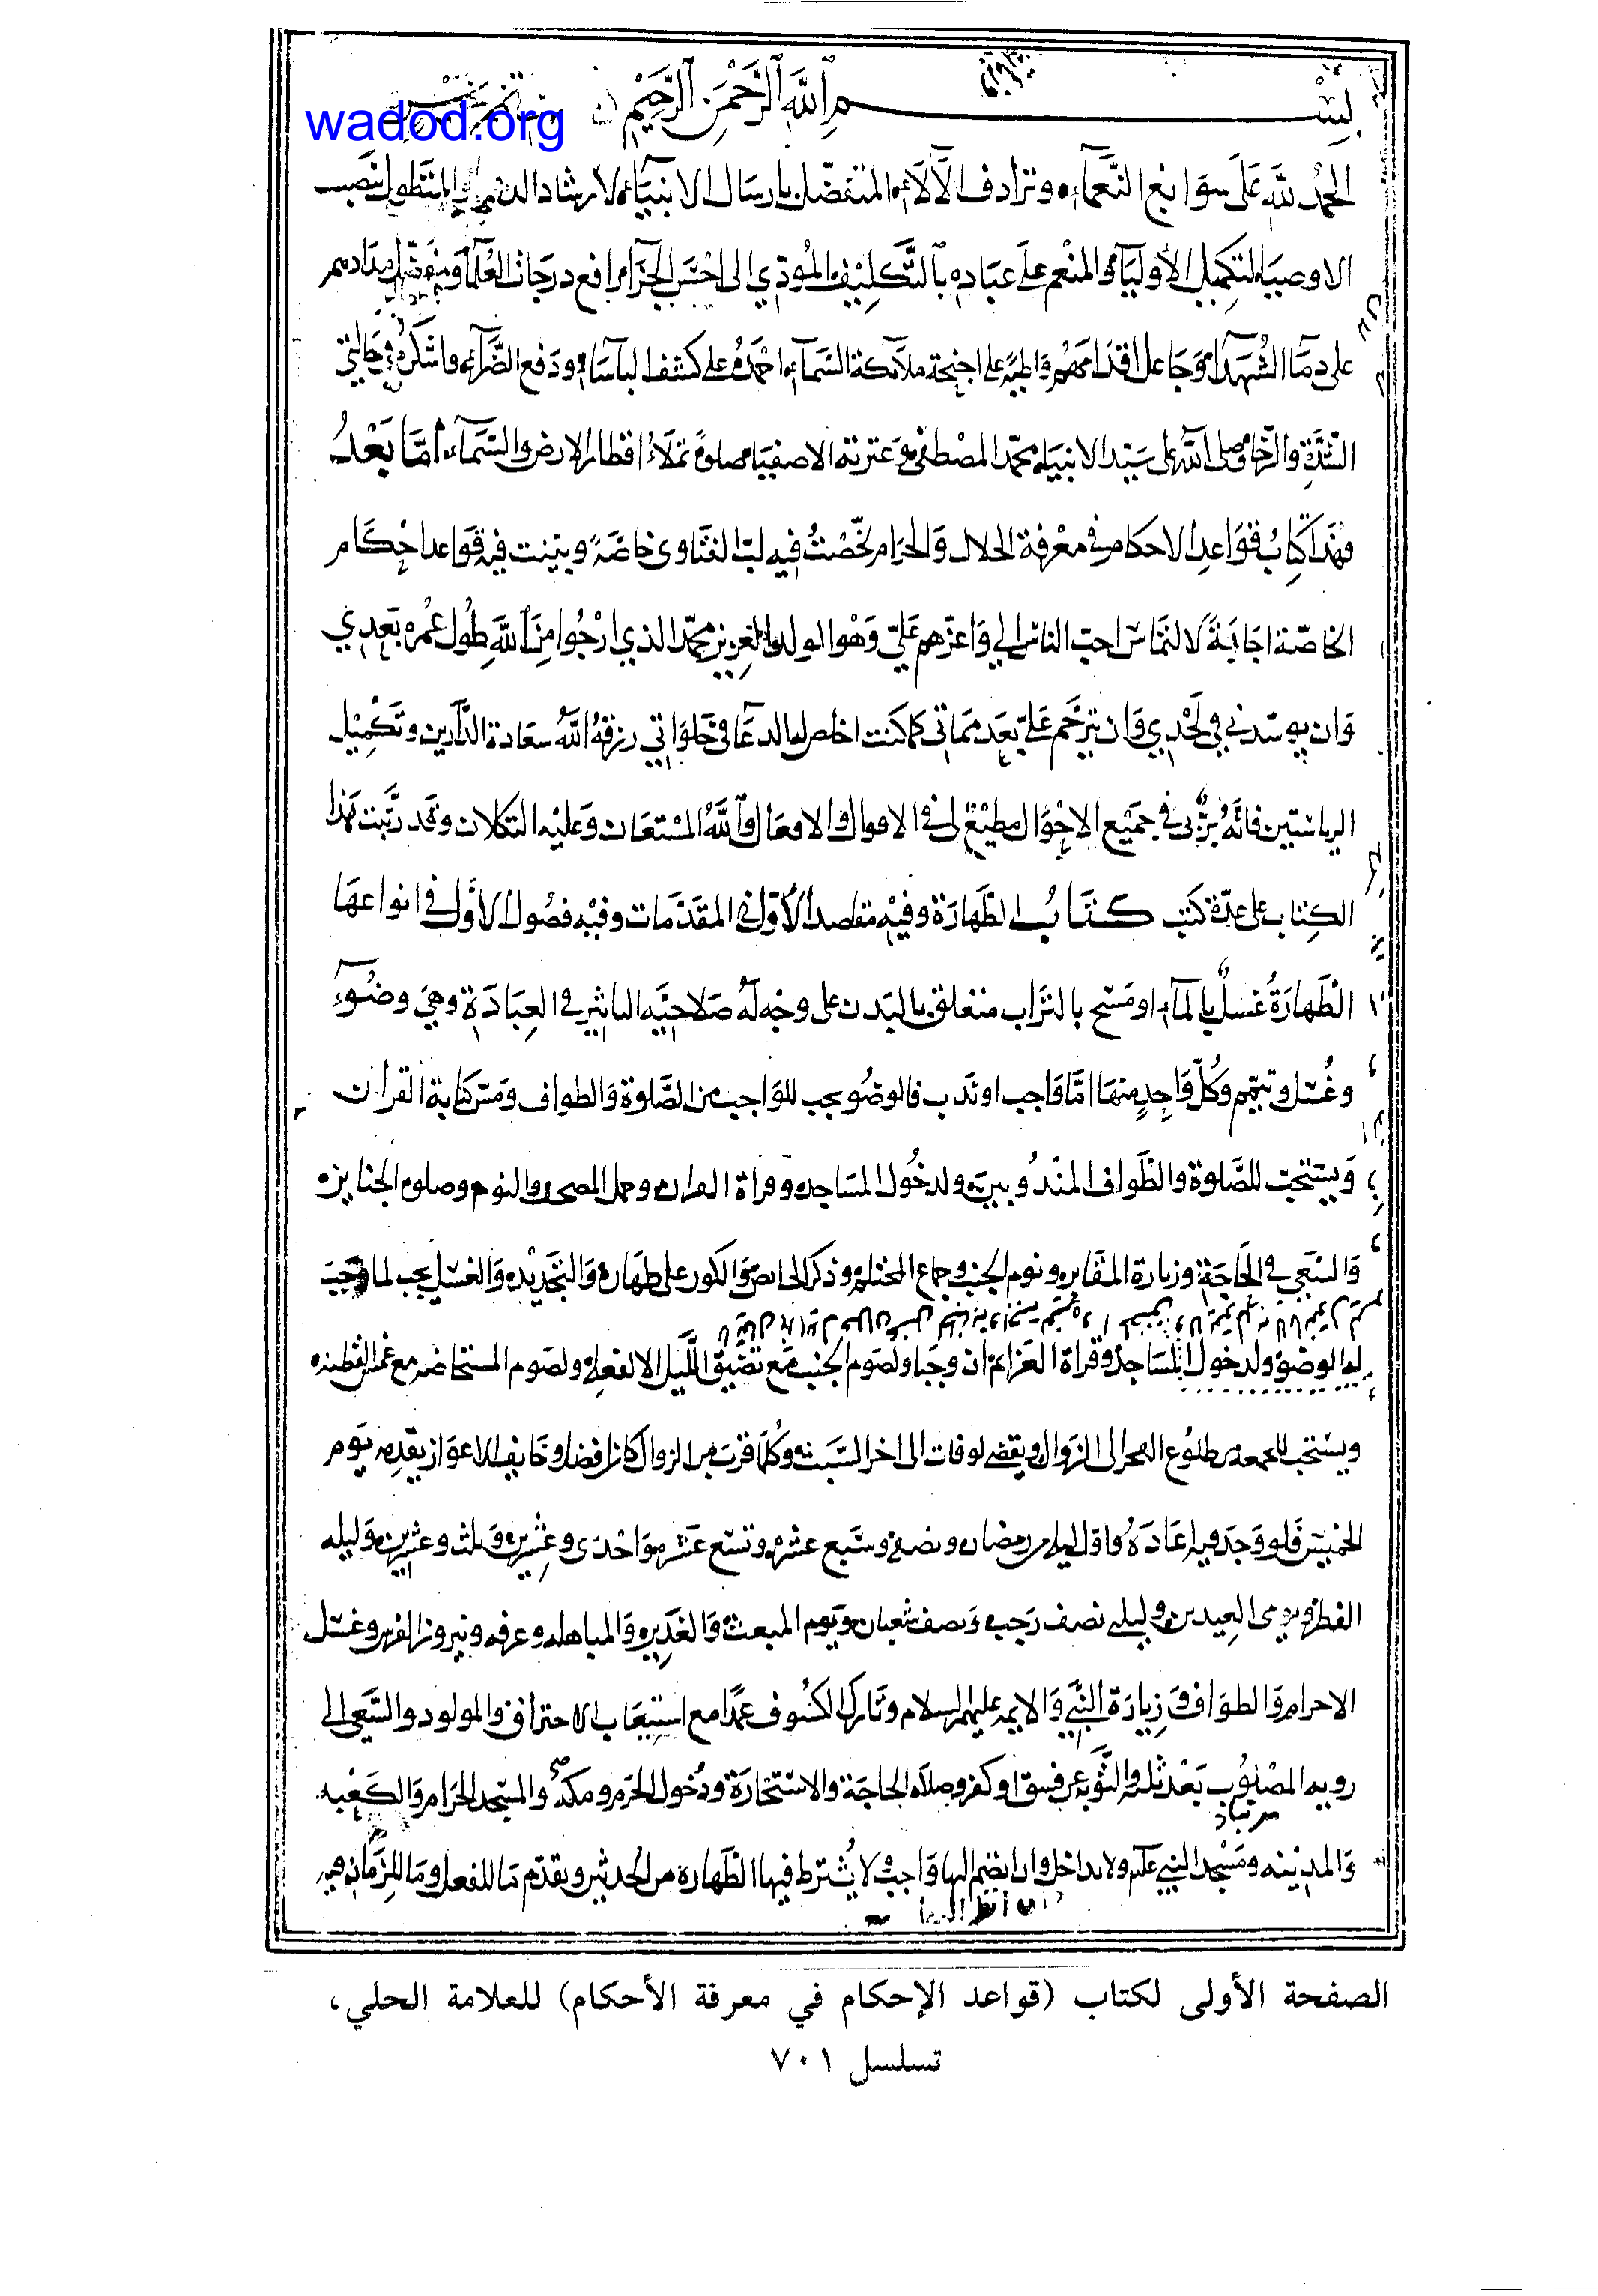 بسم الله الرحمن الرحيم
wadod.org
الحمد لله على سوابغ النعمآء وترادف الآلآء المتفضل بارسال الانبيآء لارشاد الدهمآء المتطول بنصب
الاوصيآء لتكميل الأوليآء والمنعم على عباده بالتكليف المودي الى احسن الجزآء رافع درجات العلمآء ومفضل مدادهم
على دمآ الشهدآء وجاعل اقدامهم واطية على اجنحة ملآئكة السمآء احمده على كشف الباسآء ودفع الضرآء واشكره في حالتي
الشدة والرخآ وصلى الله على سيد الانبيآء محمد المصطفى وعترته الاصفيآء صلوة تملاء اقطار الارض والسمآء أما بعد
فهذا كتاب قواعد الاحكام في معرفة الحلال والحرام لخصت فيه لب الفتاوى خاصة وبينت فيه قواعد احكام
الخاصة اجابة لالتماس احب الناس الي واعزهم علي وهو الولد العزيز محمد الذي ارجوا من الله طول عمره بعدي
وان يوسدني في لحدي وان يترحم علي بعد مماتي كما كنت اخلص له الدعآ في خلواتي رزقه الله سعادة الدارين وتكميل
الرياستين فانه بر بي في جميع الاحوال مطيع لي في الاقوال والافعال والله المستعان وعليه التكلان وقد رتبت هذا
الكتاب على عدة كتب كتاب الطهارة وفيه مقاصد الأول في المقدمات وفيه فصول الأول في انواعها
الطهارة غسل بالمآء او مسح بالتراب متعلق بالبدن على وجه له صلاحيه التاثير في العبادة وهي وضوء
وغسل وتيمم وكل واحد منها اما واجب او ندب فالوضو يجب للواجب من الصلوة والطواف ومس كتابة القران
ويستحب للصلوة والطواف المندوبين ولدخول المساجد وقراة القران وحمل المصحف والنوم وصلوه الجنايز
والسعي في الحاجة وزيارة المقابر ونوم الجنب وجماع المحتلم وذكر الحايض والكون على طهارة والتجديد والغسل يجب لما وجب
له الوضو ولدخول المساجد وقراة العزايم ان وجبا ولصوم الجنب مع تضيق الليل الا لفعله ولصوم المستحاضه مع غمس القطنه
ويستحب للجمعه من طلوع الفجر الى الزوال ويقضي لو فات الى اخر السبت وكلما قرب من الزوال كان افضل وخايف الاعواز يقدمه يوم
الخميس فلو وجد فيه اعاده واول ليله من رمضان ونصفه وسبع عشره وتسع عشره واحدى وعشرين وثلث وعشرين وليله
الفطر ويومي العيدين وليلتي نصف رجب ونصف شعبان ويوم المبعث والغدير والمباهله وعرفه ونيروز الفرس وغسل
الاحرام والطواف وزيارة النبي والايمه عليهم السلام وتارك الكسوف عمدا مع استيعاب الاحتراق والمولود والسعي الى
رويه المصلوب بعد ثلثه والتوبه عن فسق او كفر وصلاه الحاجة والاستخارة ودخول الحرم ومكه والمسجد الحرام والكعبه
والمدينه ومسجد النبي ولا تداخل وان انضم اليها واجب ولا يشترط فيها الطهاره من الحدثين ويقدم ما للفعل وما للزمان فيه
الصفحة الأولى لكتاب (قواعد الإحكام في معرفة الأحكام) للعلامة الحلي،
تسلسل ٧٠١